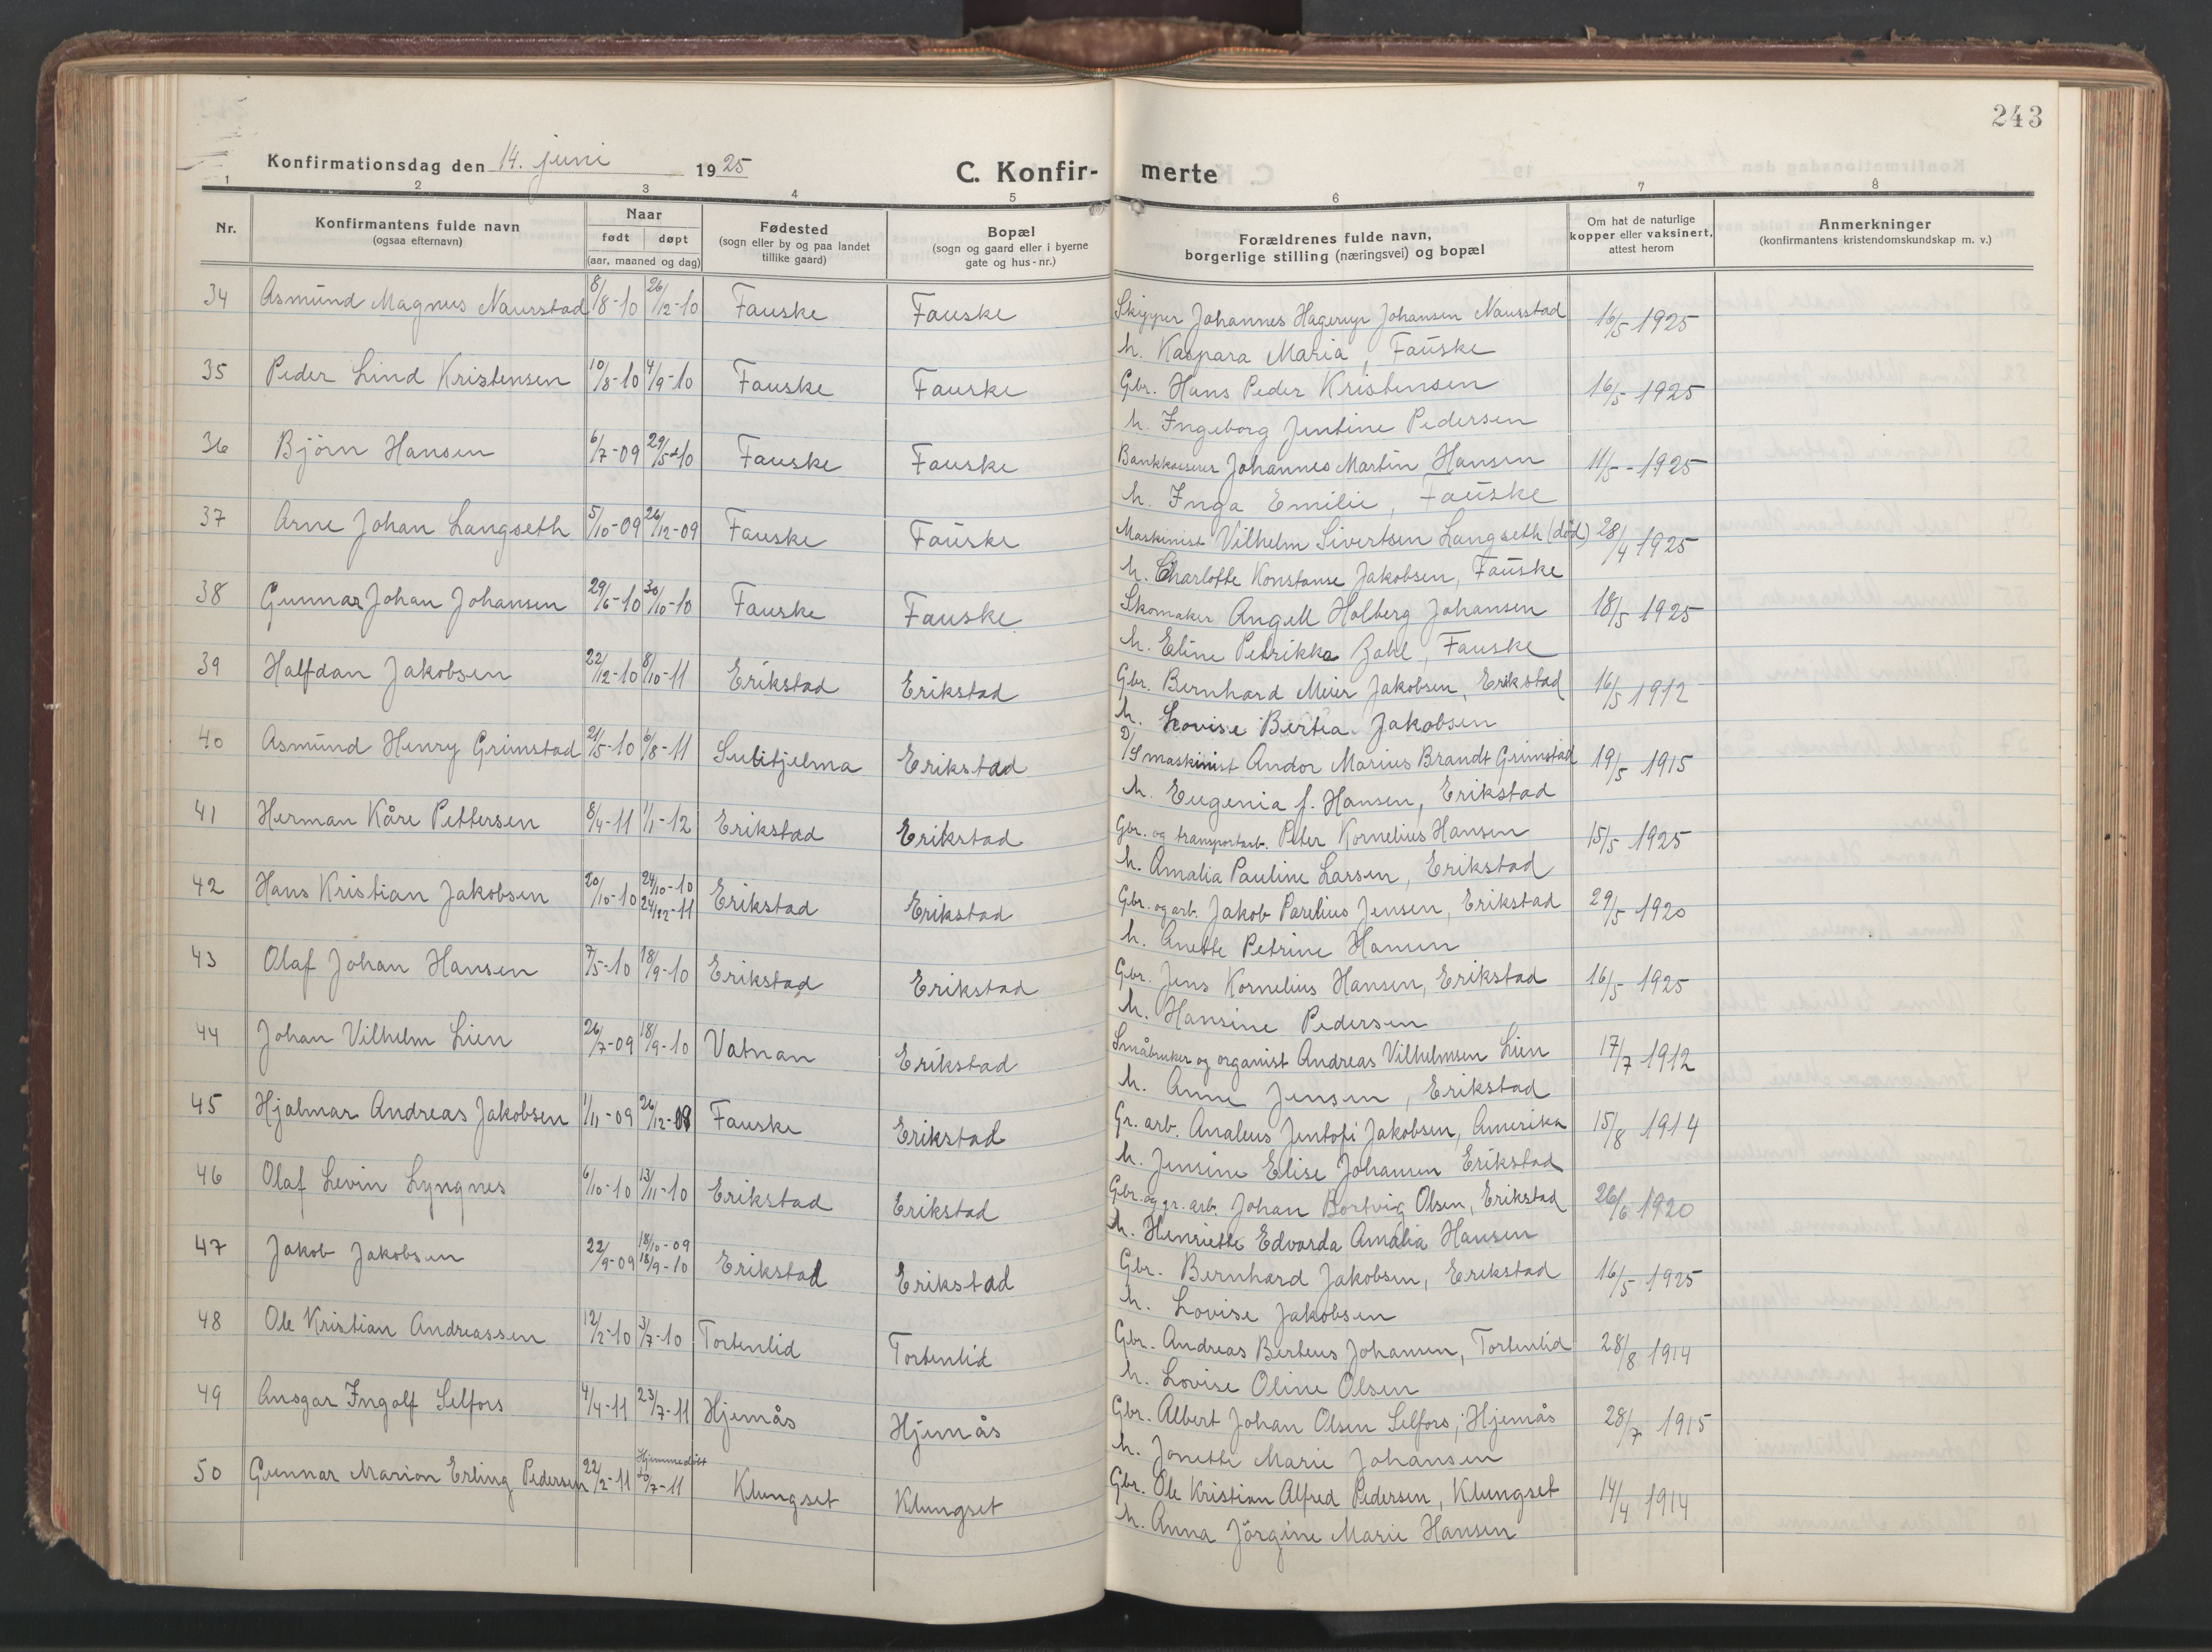 243
Konfirmationsdag den 14. juni 1925
C. Konfir- merte
1 2 3 4 5 6 7 8
Nr.
Konfirmantens fulde navn
(ogsaa efternavn)
Naar
født døpt
(aar, maaned og dag)
Fødested
(sogn eller by og paa landet
tillike gaard)
Bopæl
(sogn og gaard eller i byerne
gate og hus-nr.)
Forældrenes fulde navn,
borgerlige stilling (næringsvei) og bopæl
Om hat de naturlige
kopper eller vaksinert,
attest herom
Anmerkninger
(konfirmantens kristendomskundskap m. v.)
34 Asmund Magnus Naurstad 8/8-10 26/12-10 Fauske Fauske Skipper Johannes Hagerup Johansen Naurstad 16/5 1925
h. Kaspara Maria, Fauske
35 Peder Lind Kristensen 10/8-10 4/9-10 Fauske Fauske Gbr. Hans Peder Kristensen 16/5 1925
h. Ingeborg Jentine Pedersen
36 Björn Hansen 6/7-09 29/5-10 Fauske Fauske Bankkasserer Johannes Martin Hansen 11/5-1925
h. Inga Emilie, Fauske
37 Arne Johan Langseth 5/10-09 26/12-09 Fauske Fauske Maskinist Vilhelm Sivertsen Langseth (död) 28/4 1925
h. Charlotte Konstanse Jakobsen, Fauske
38 Gunnar Johan Johansen 29/6-10 30/10-10 Fauske Fauske Skomaker Angell Holberg Johansen 18/5 1925
h. Eline Petrikka Zahl, Fauske
39 Halfdan Jakobsen 22/12-10 8/10-11 Erikstad Erikstad Gbr. Bernhard Meier Jakobsen, Erikstad 16/5 1912
h. Lovise Bertea Jakobsen
40 Asmund Henry Grimstad 21/5-10 6/8-11 Sulitjelma Erikstad D/S maskinist Andor Marius Brandt Grimstad 19/5 1915
h. Eugenia f. Hansen, Erikstad
41 Herman Kåre Pettersen 8/4-11 1/1-12 Erikstad Erikstad Gbr. og transportarb. Peter Kornelius Hansen 15/5 1925
h. Amalia Pauline Larsen, Erikstad
42 Hans Kristian Jakobsen 20/10-10 24/10-10 24/12-11 Erikstad Erikstad Gbr. og arb. Jakob Parelius Jensen, Erikstad 29/5 1920
h. Anette Petrine Hansen
43 Olaf Johan Hansen 7/5-10 18/9-10 Erikstad Erikstad Gbr. Jens Kornelius Hansen, Erikstad 16/5 1925
h. Hansine Pedersen
44 Johan Vilhelm Lien 26/7-09 18/9-10 Vatnan Erikstad Småbruker og organist Andreas Vilhelmsen Lien 17/7 1912
h. Anne Jensen, Erikstad
45 Hjalmar Andreas Jakobsen 1/11-09 26/12-09 Fauske Erikstad Gr. arb. Analeus Jentoft Jakobsen, Amerika 15/8 1914
h. Jensine Elise Johansen Erikstad
46 Olaf Levin Lyngnes 6/10-10 13/11-10 Erikstad Erikstad Gbr. og gr. arb. Johan Bortvig Olsen, Erikstad 26/6 1920
h. Henriette Edvarda Amalia Hansen
47 Jakob Jakobsen 22/9-09 18/10-09 18/9-10 Erikstad Erikstad Gbr. Bernhard Jakobsen, Erikstad 16/5 1925
h. Lovise Jakobsen
48 Ole Kristian Andreassen 12/2-10 3/7-10 Tortenlid Tortenlid Gbr. Andreas Berteus Johansen, Tortenlid 28/8 1914
h. Lovise Oline Olsen
49 Ansgar Ingolf Selfors 4/4-11 23/7-11 Hjemås Hjemås Gbr. Albert Johan Olsen Selfors, Hjemås 28/7 1915
h. Jonette Marie Johansen
50 Gunnar Marion Erling Pedersen 22/2-11 Hjemmedöbt /7-11 Klungset Klungset Gbr. Ole Kristian Alfred Pedersen, Klungset 14/4 1914
h. Anna Jörgine Marie Hansen